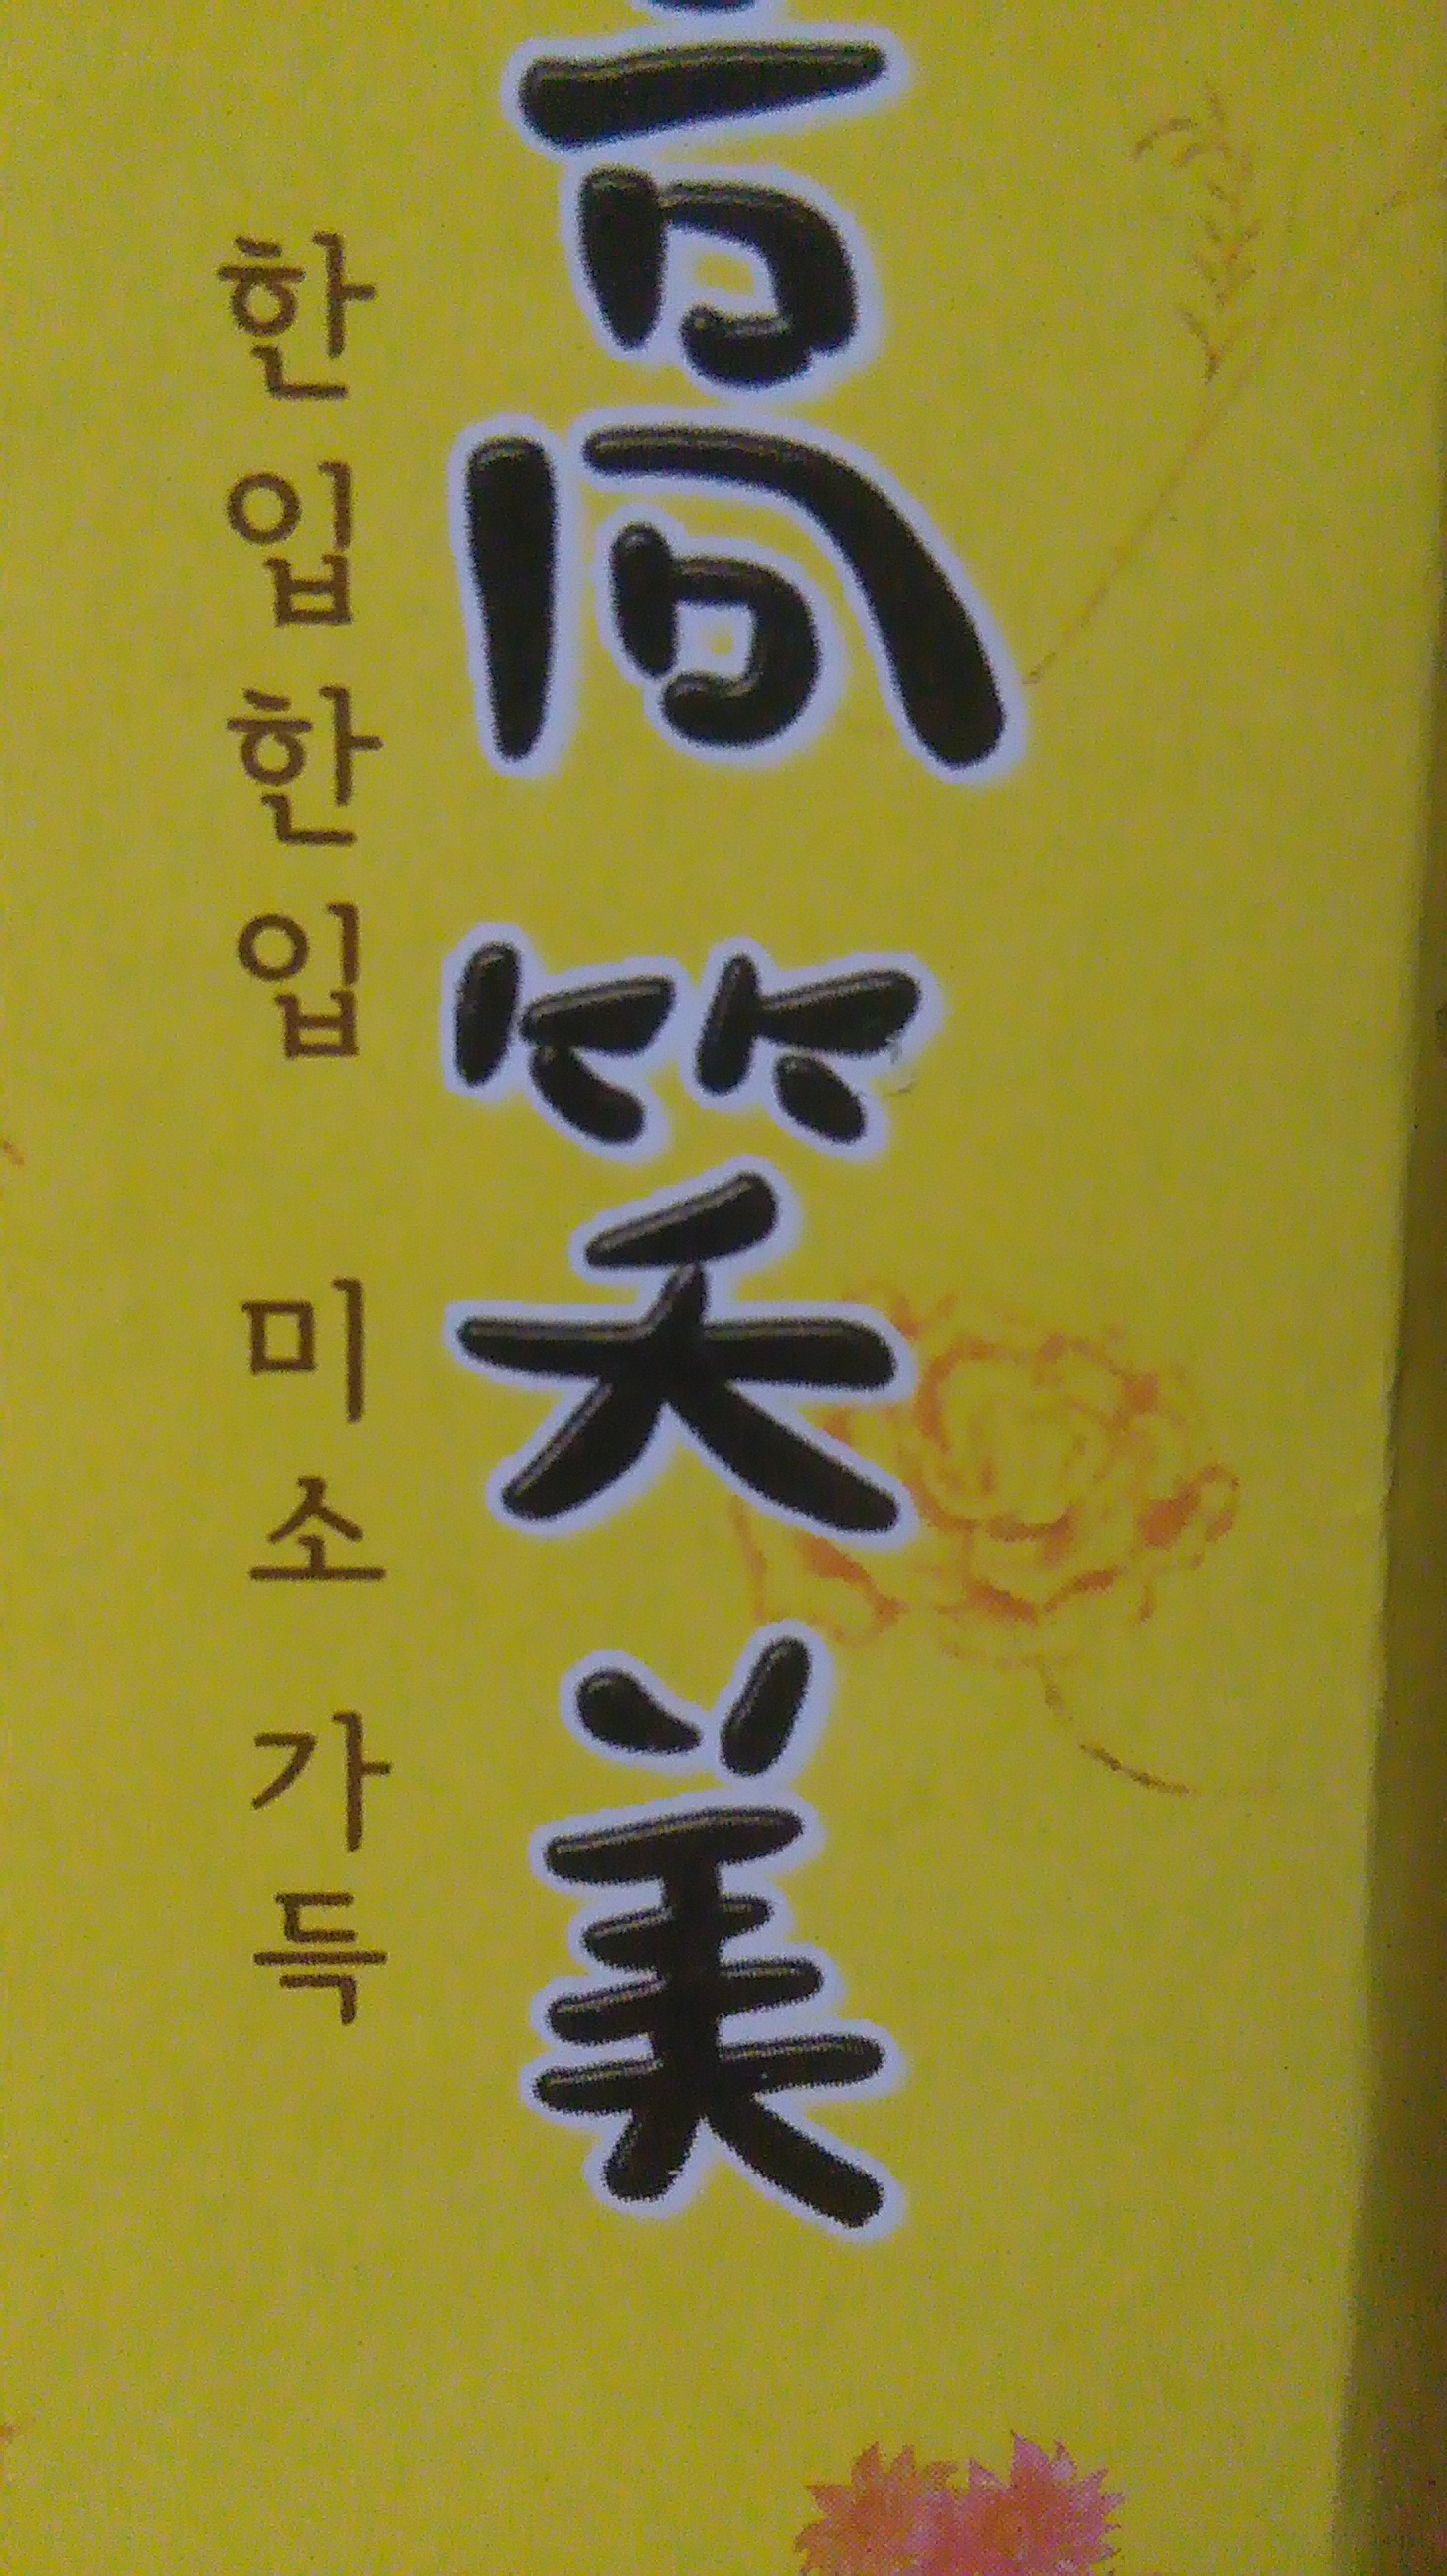 高笑美
한입한입 미소가득